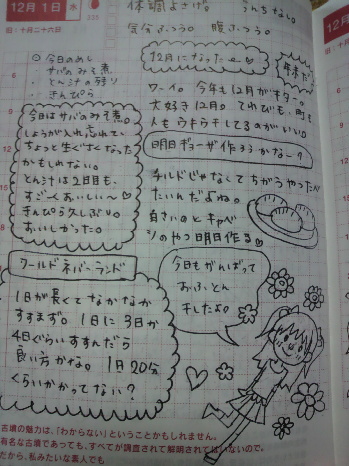 12月1日 水
旧:十月二十六日
体調よさげ。 うんちなし。
気分ふつう。 腹ふつう。
今日のめし
サバのみそ煮
とん汁の残り
きんぴら
12月になったー♡
年末だ
ワーイ。今年も12月がキター。
大好き12月。てれびも、町も
人もウキウキしてるのがいい。
今日はサバのみそ煮。
しょうが入れ忘れてい
ちょっと生ぐさくなった
かもしれない。
とん汁は2日目も、
すごーくおいしい〜♡
きんぴら久しぶり。
おいしかった。
明日ギョーザ作ろうかなー?
チルドじゃなくてちがうやつたべ
たいんだよね。
白さいのとキャベ
ツのやつ明日作る♡
ワールドネバーランド
1日が長くてなかなか
すすまず。1日に3日か
4日ぐらいすすんだら
良い方かな。1日20分
くらいかかってない?
今日もがんばって
おふとん
干したよ。
古墳の魅力は、「わからない」ということかもしれません。
有名な古墳であっても、すべてが調査されて解明されてはいないので。
だから、私みたいな素人でも
12月
9
12
15
18